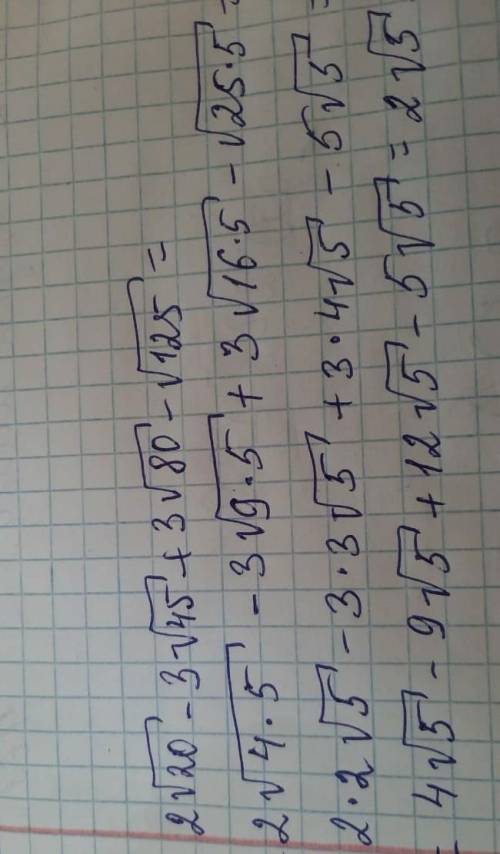 2√20 - 3√45 + 3√80 - √125 =
2√4·5 - 3√9·5 + 3√16·5 - √25·5 =
2·2√5 - 3·3√5 + 3·4√5 - 5√5 =
= 4√5 - 9√5 + 12√5 - 5√5 = 2√5